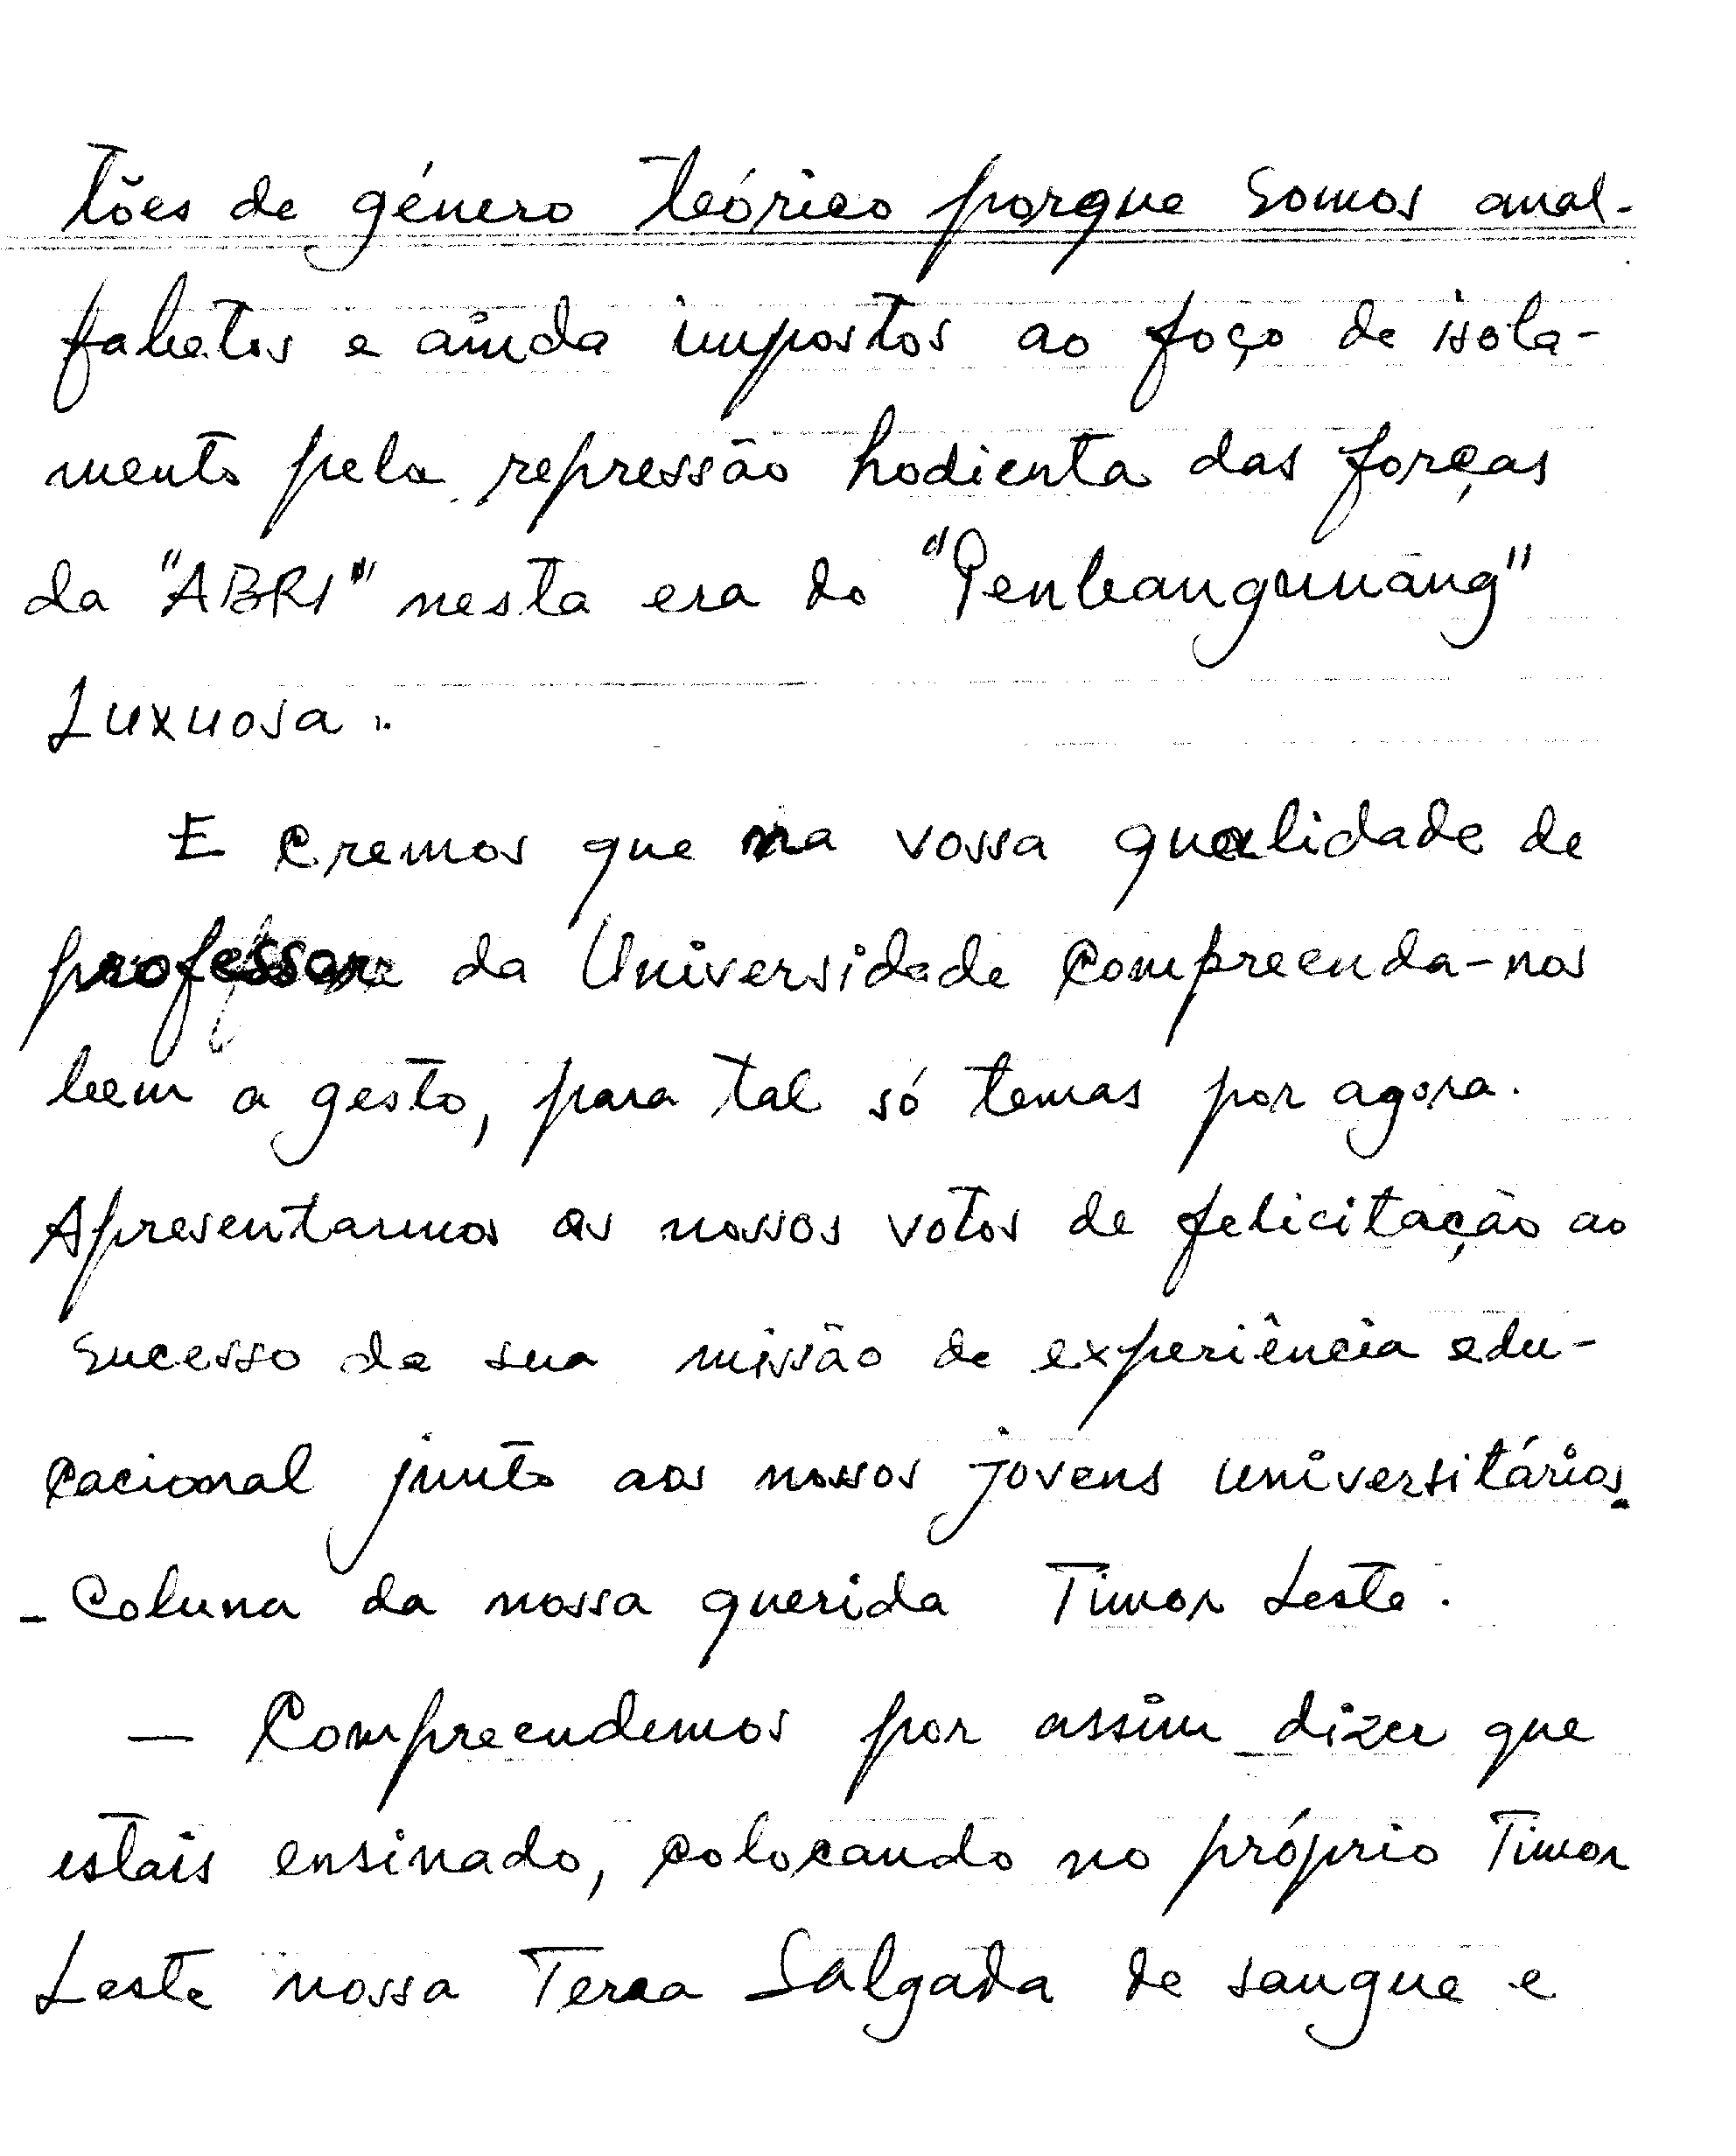 tões de género teórico porque somos anal-
fabetos e ainda impostos ao foço de isola-
mento pela repressão hodienta das forças
da "ABRI" nesta era do "Penbangunāng"
Luxuosa.
E cremos que na vossa qualidade de
professor da Universidade compreenda-nos
bem o gesto, para tal só temas por agora.
Apresentarmos os nossos votos de felicitação ao
sucesso da sua missão de experiência edu-
cacional junto aos nossos jovens universitários.
- Coluna da nossa querida Timor Leste.
— Compreendemos por assim dizer que
estais ensinado, colocando no próprio Timor
Leste nossa Terra Salgada de sangue e